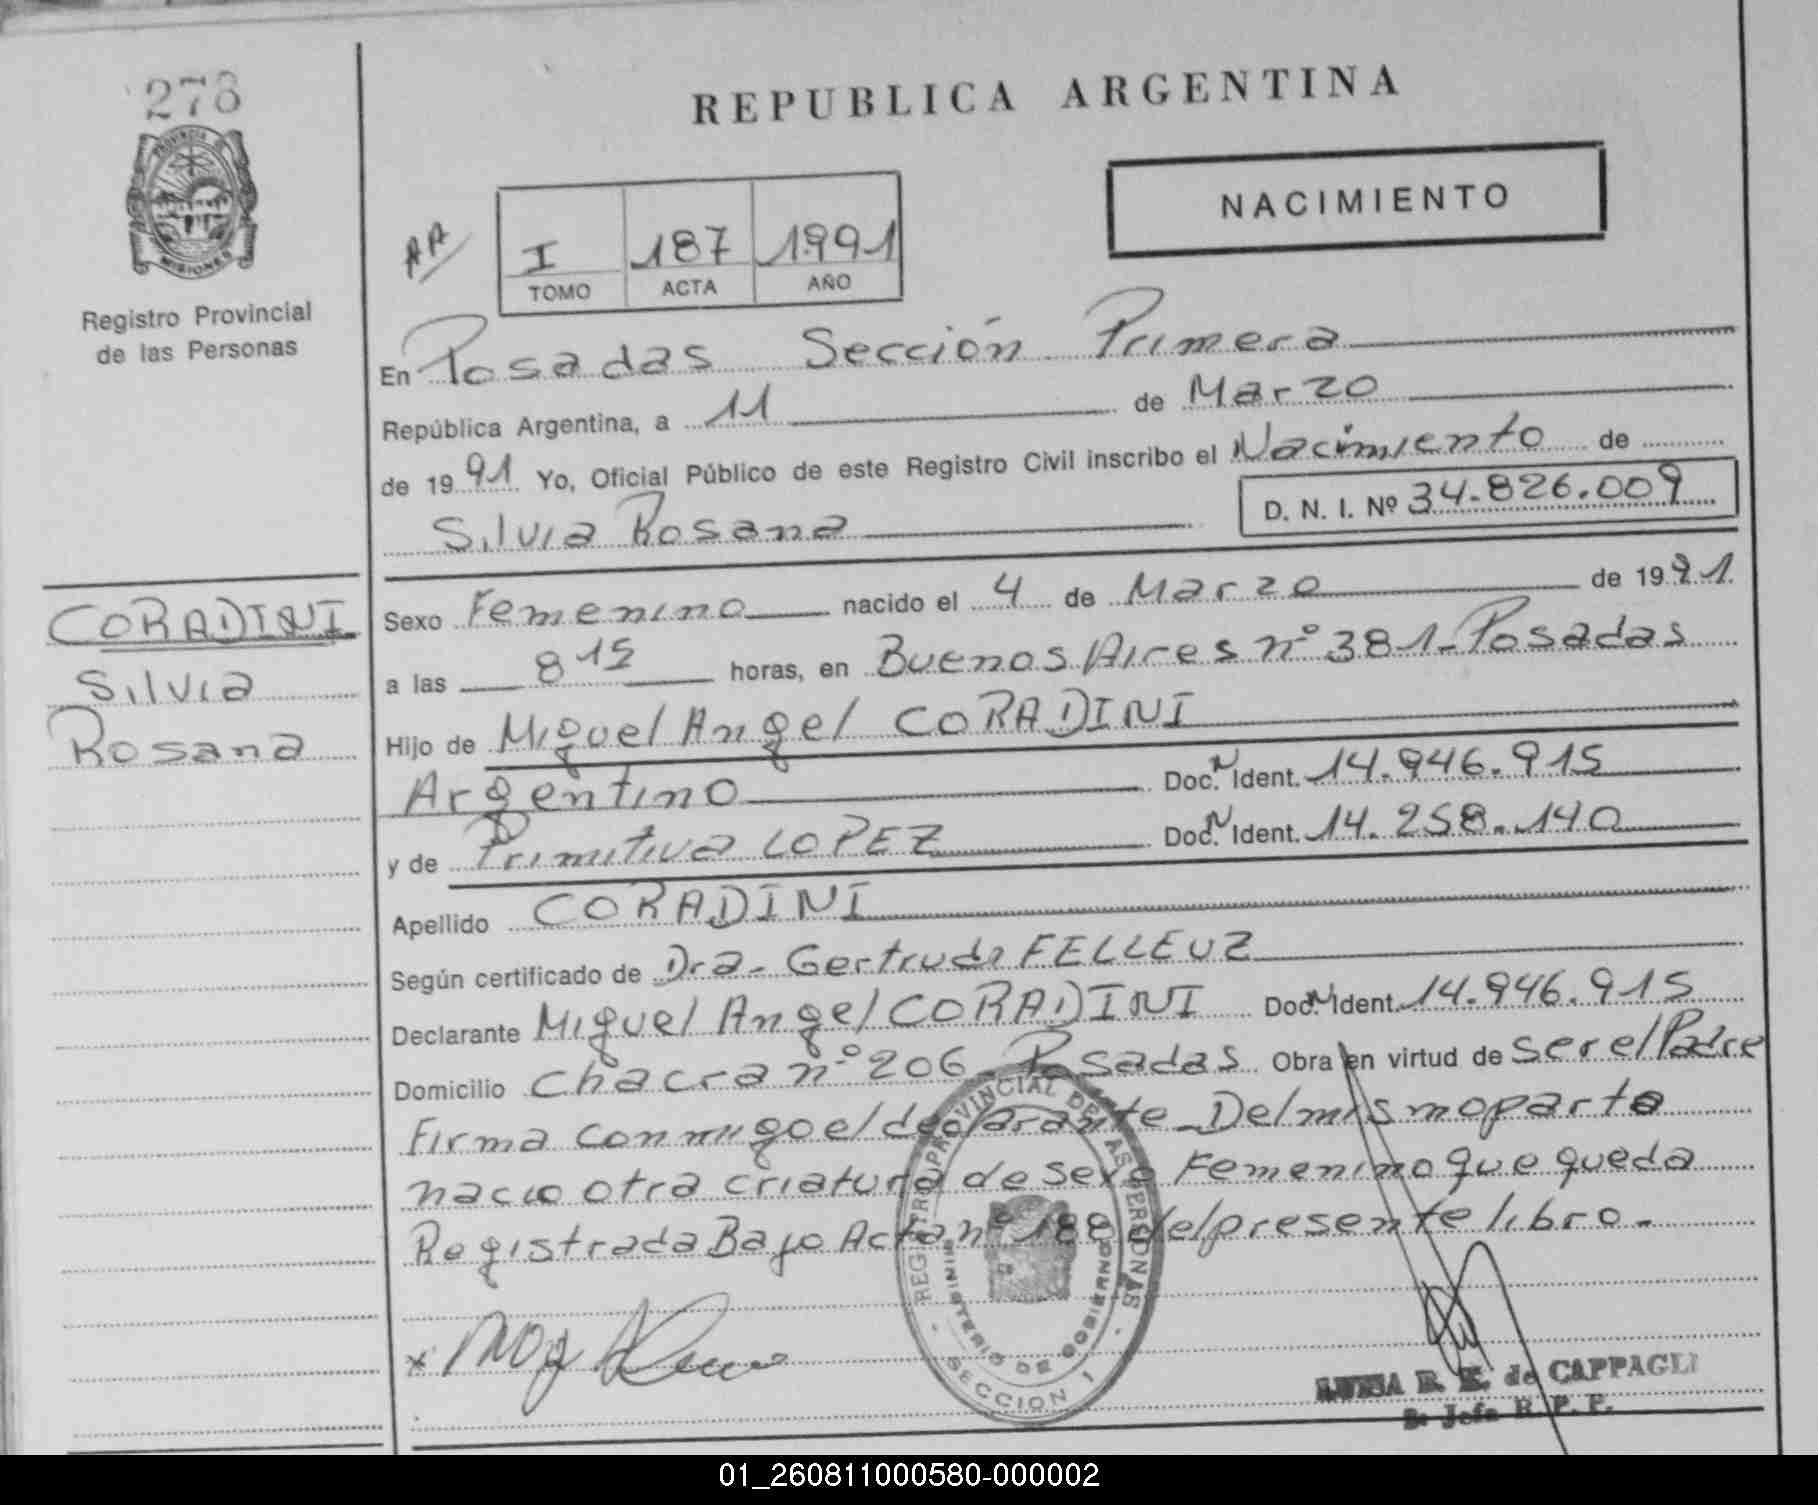 278
PROVINCIA DE
MISIONES
Registro Provincial
de las Personas
CORADINI
Silvia
Rosana
REPUBLICA ARGENTINA
NACIMIENTO
AA
I 187 1991
TOMO ACTA AÑO
En Posadas Sección Primera
República Argentina, a 11 de Marzo
de 1991 Yo, Oficial Público de este Registro Civil inscribo el Nacimiento de
Silvia Rosana D. N. I. Nº 34.826.009
Sexo Femenino nacido el 4 de Marzo de 1991
a las 8 15 horas, en Buenos Aires nº 381-Posadas
Hijo de Miguel Angel CORADINI
Argentino Doc. N Ident. 14.946.915
y de Primitiva LOPEZ Doc. N Ident. 14.258.140
Apellido CORADINI
Según certificado de Dra. Gertrudi FELLEUZ
Declarante Miguel Angel CORADINI Doc. N Ident. 14.946.915
Domicilio Chacra nº 206-Posadas Obra en virtud de ser el Padre
Firma conmigo el declarante-Del mismo parto
nacio otra criatura de sexo Femenino que queda
Registrada Bajo Acta nº 188 del presente libro.-
REGISTRO PROVINCIAL DE LAS PERSONAS
MINISTERIO DE GOBIERNO
SECCION 1
x
LUISA R. K. de CAPPAGLI
Jefa R. P. P.
01_260811000580-000002